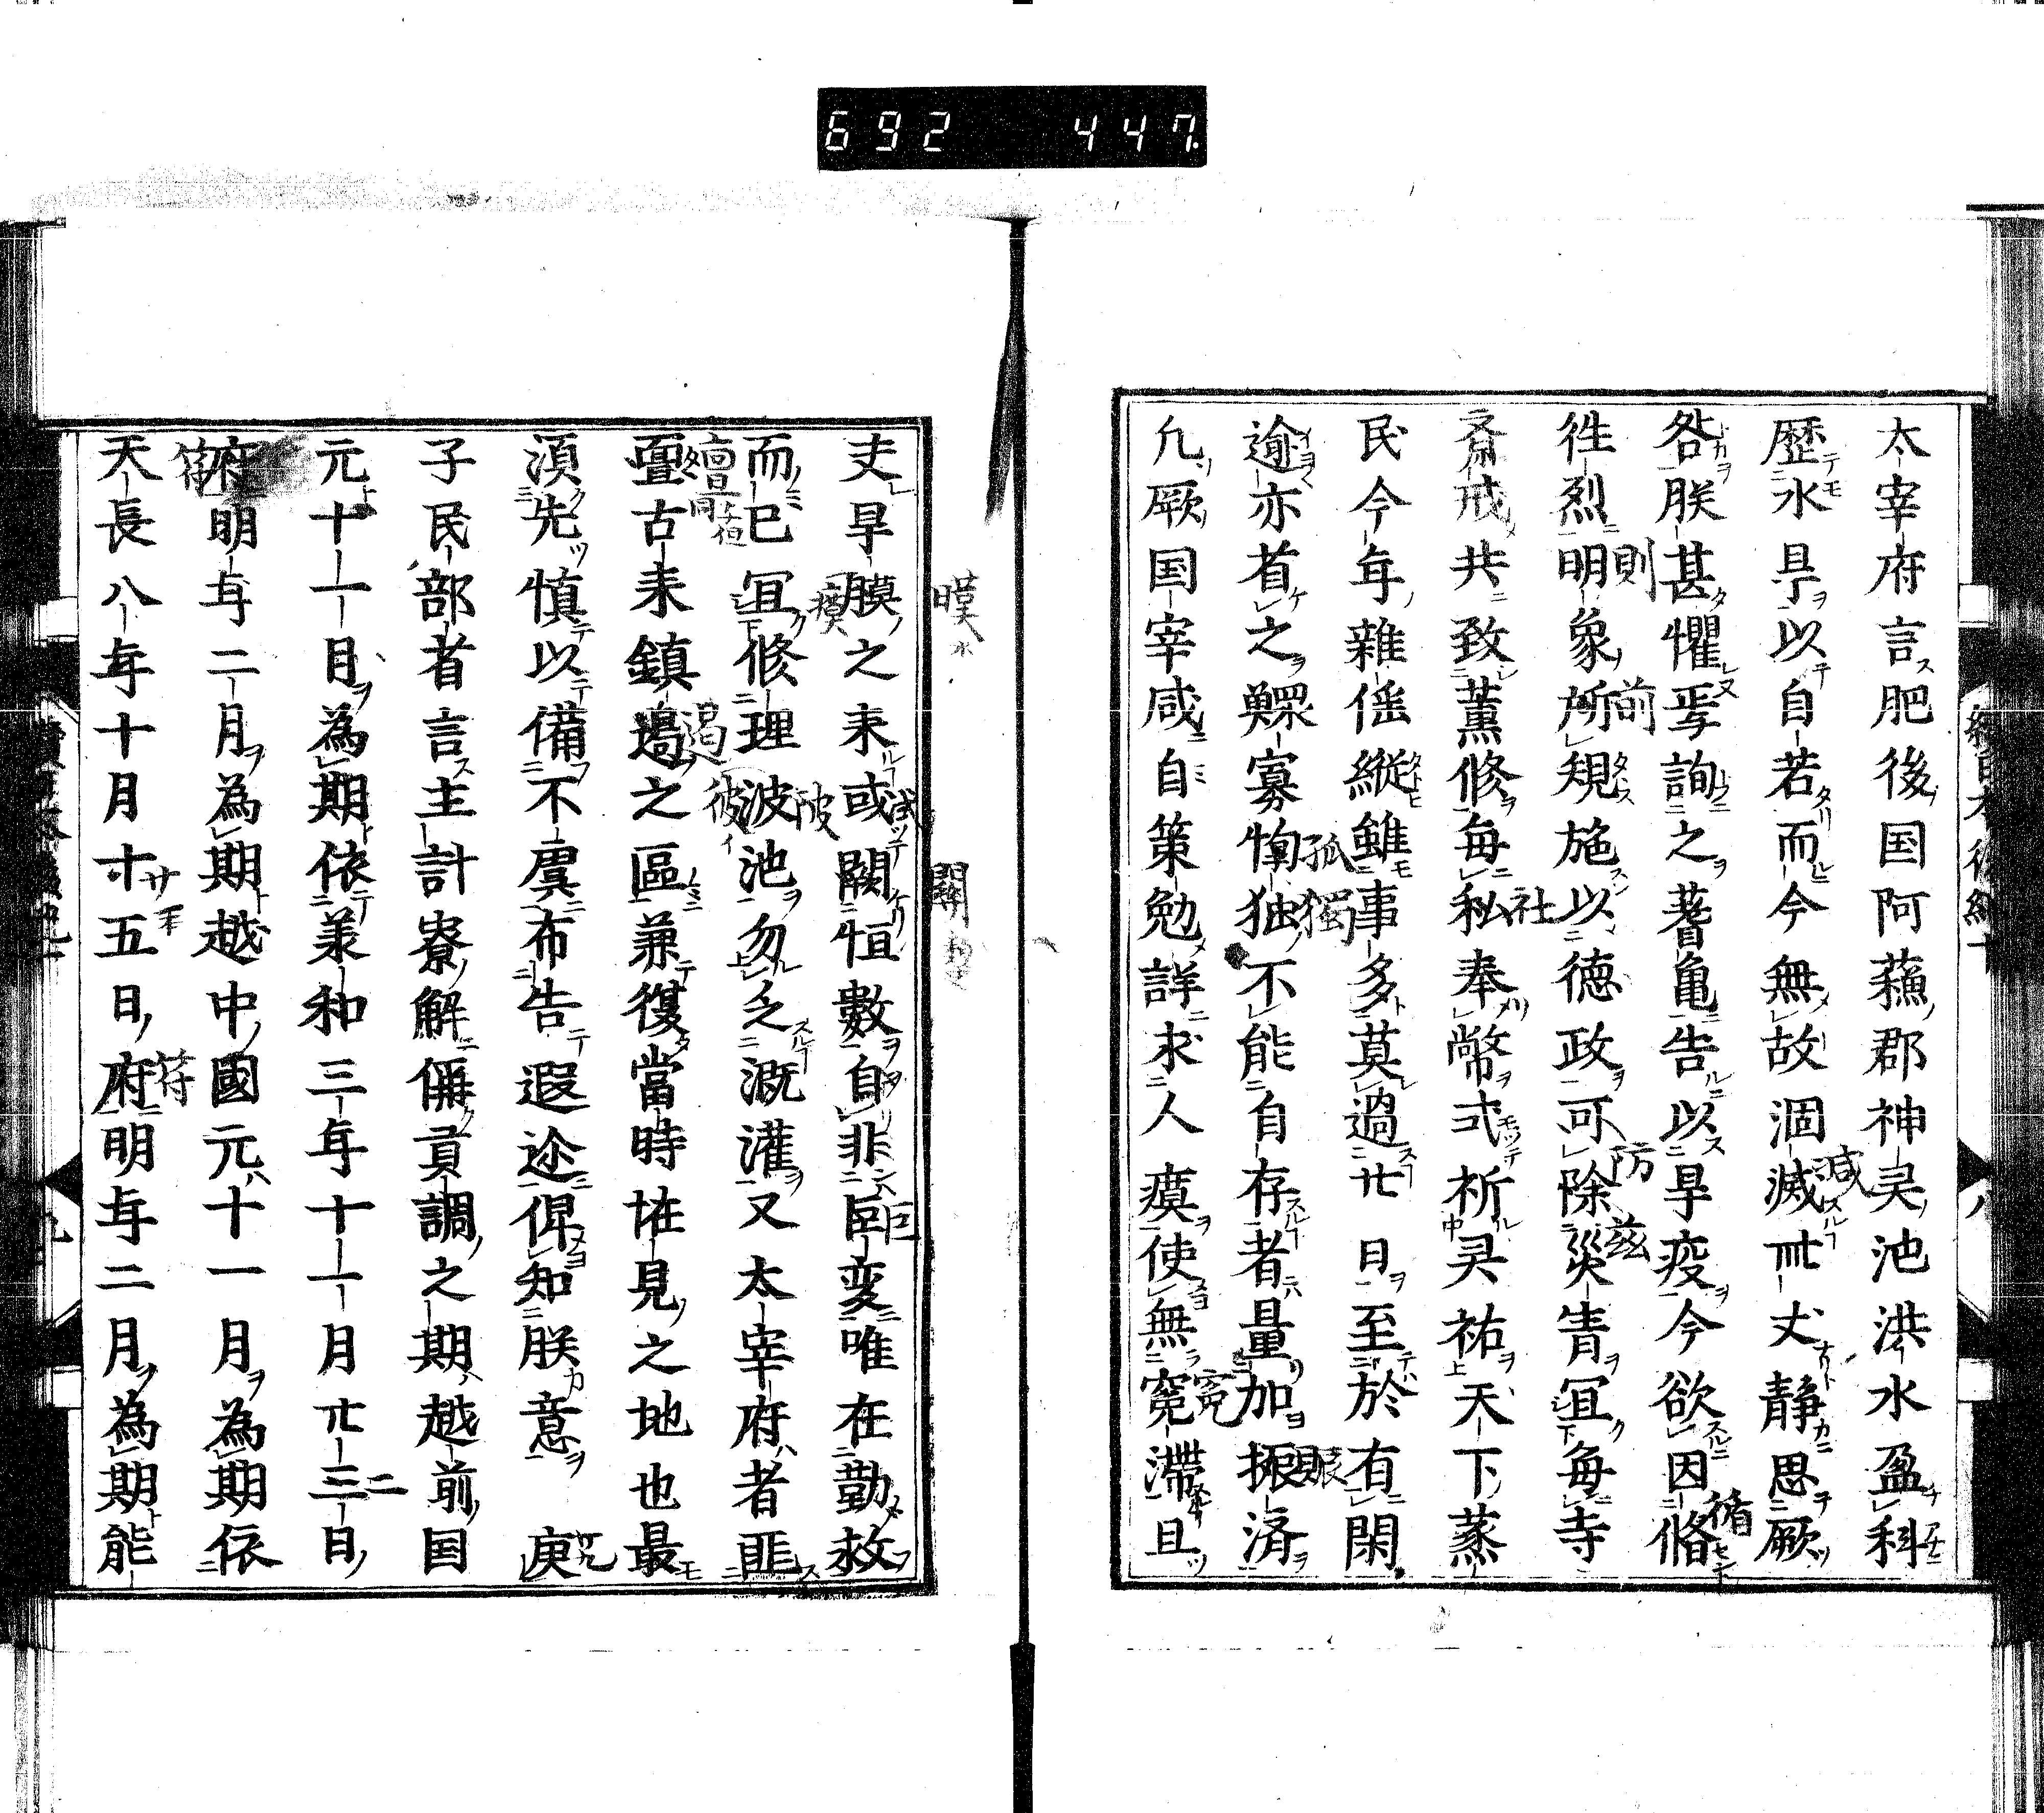 692 447
太宰府言肥後国阿蘓郡神灵池洪水盈科
歴水旱以自若而今無故涸滅卌丈静思厥
咎朕甚懼焉詢之蓍亀告以旱疫今欲因脩
徃烈明象所規施以徳政可除災眚冝毎寺
斎戒共致薫修毎私奉幣式祈灵祐天下蒸
民今年雜徭縱雖事多莫過廿日至於有閑
逾亦省之鰥寡惸独不能自存者量加振済
凢厥国宰咸自策勉詳求人瘼使無寃滯且
夫旱膜之来或闕恒數自非臣変唯在勤救
而已冝修理波池勿乏溉灌又太宰府者匪
亶古来鎮塲之區兼復當時恠見之地也最
湏先慎以備不虞布告遐迩俾知朕意　庚
子民部省言主計寮解偁貢調之期越前国
元十一月為期依兼和三年十一月廿三日
府明年二月為期越中國元十一月為期依
天長八年十月廿五日府明年二月為期能